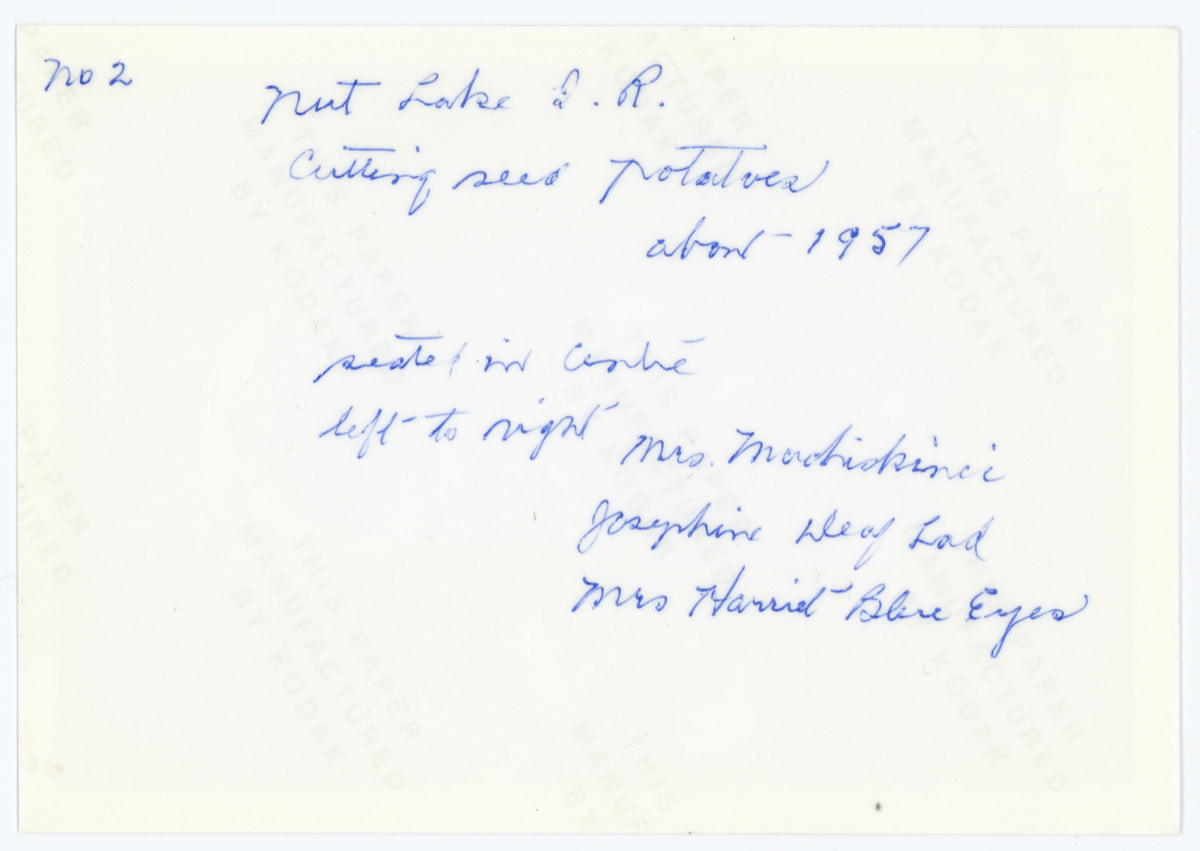 No 2
Nut Lake I. R.
Cutting seed potatoes
about 1957
seated in Centre
left to right Mrs.
Josephine Deaf Lad
Mrs Harriet Blue Eyes
THIS PAPER
MANUFACTURED
BY KODAK